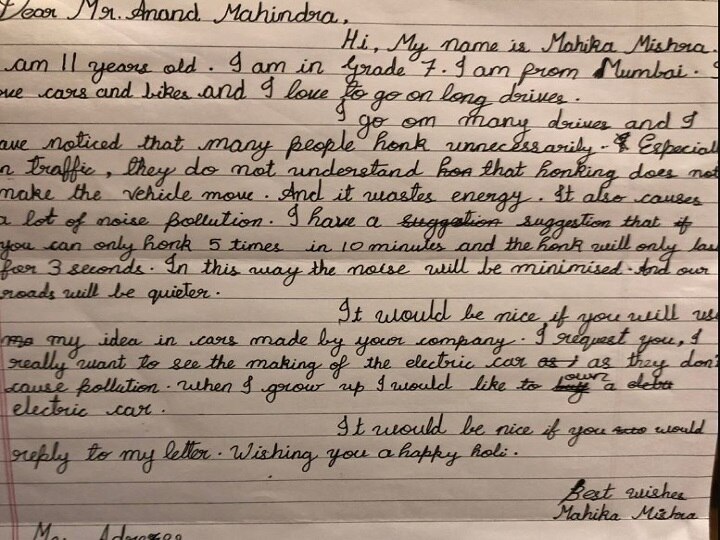 Dear Mr. Anand Mahindra,
Hi, My name is Mahika Mishra.
am 11 years old. I am in Grade 7. I am from Mumbai. I
ove cars and bikes and I love to go on long drives.
I go om many drives and I
ave noticed that many people honk unnecessarily. Especiall
n traffic, they do not understand hon that honking does not
make the vehicle move. And it wastes energy. It also causes
a lot of noise pollution. I have a suggestion suggestion that if
you can only honk 5 times in 10 minutes and the honk will only las
for 3 seconds. In this way the noise will be minimised. And our
roads will be quieter.
It would be nice if you will us
my idea in cars made by your company. I request you, I
really want to see the making of the electric car as i as they don't
cause pollution. When I grow up I would like to buy own a
electric car.
It would be nice if you would
reply to my letter. Wishing you a happy holi.
Best wishes
Mahika Mishra
My Adress